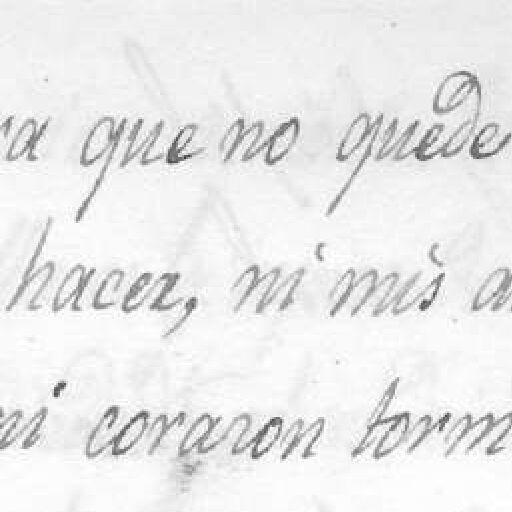 ra que no quede
hacer, ni mis a
ni corazon torm